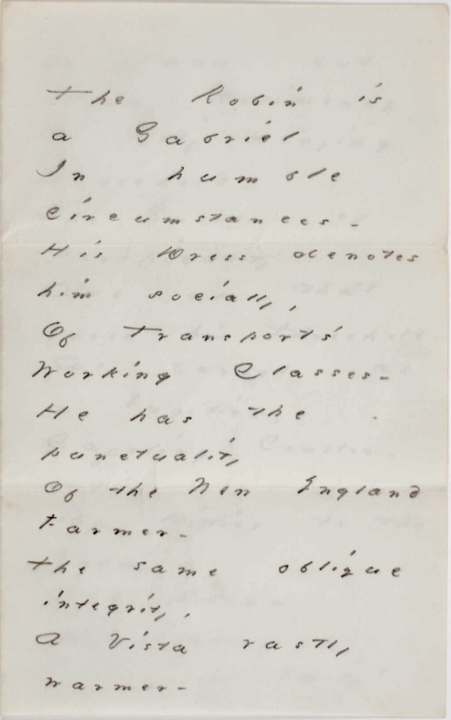 The Robin is
a Gabriel
In humble
Circumstances -
His Dress denotes
him socially,
Of Transport's
Working Classes -
He has the
punctuality
Of the New England
Farmer -
The same oblique
integrity,
A Vista vastly
warmer -